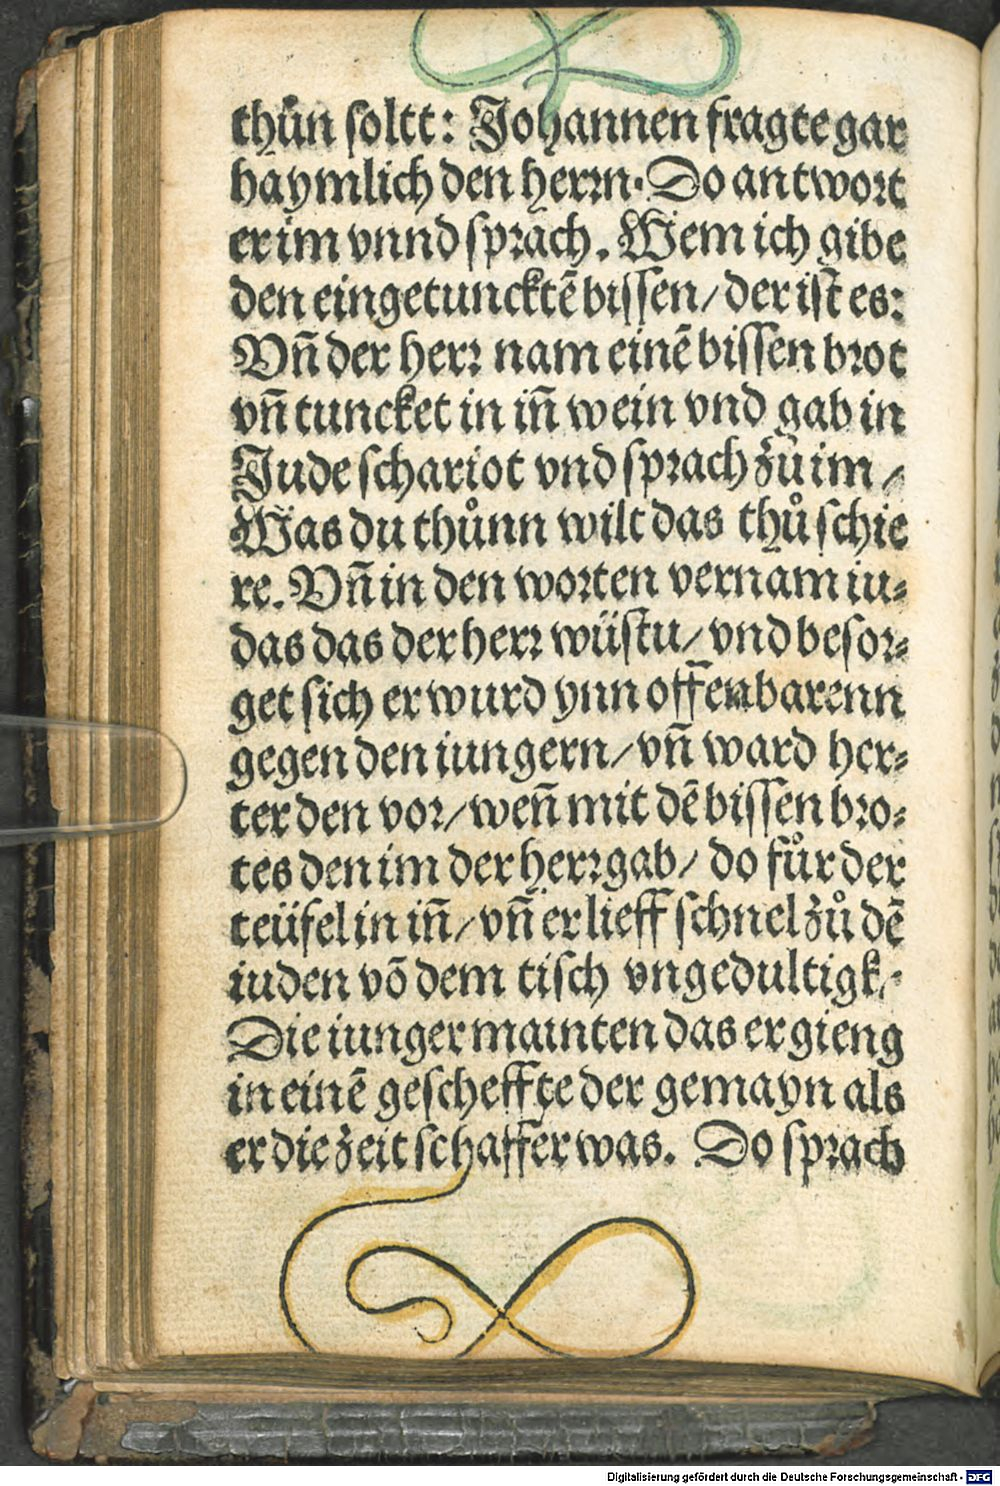 thůn soltt: Johannen fragte gar
haymlich den herrn. Do antwort
er im vnnd sprach. Wem ich gibe
den eingetuncktē bissen/ der ist es:
Vñ der herr nam einē bissen brot
vñ tuncket in iñ wein vnd gab in
Jude schariot vnd sprach zů im/
Was du thůnn wilt das thů schie
re. Vñ in den worten vernam iu⸗
das das der herr wüstu/ vnd besor⸗
get sich er wurd ynn offenbarenn
gegen den iungern/ vñ ward her⸗
ter den vor/ weñ mit dē bissen bro⸗
tes den im der herr gab/ do fůr der
teüfel in iñ/ vñ er lieff schnel zů dē
iuden vō dem tisch vngedultigk/
Die iunger mainten das er gieng
in einē gescheffte der gemayn als
er die zeit schaffer was. Do sprach
Digitalisierung gefördert durch die Deutsche Forschungsgemeinschaft - DFG